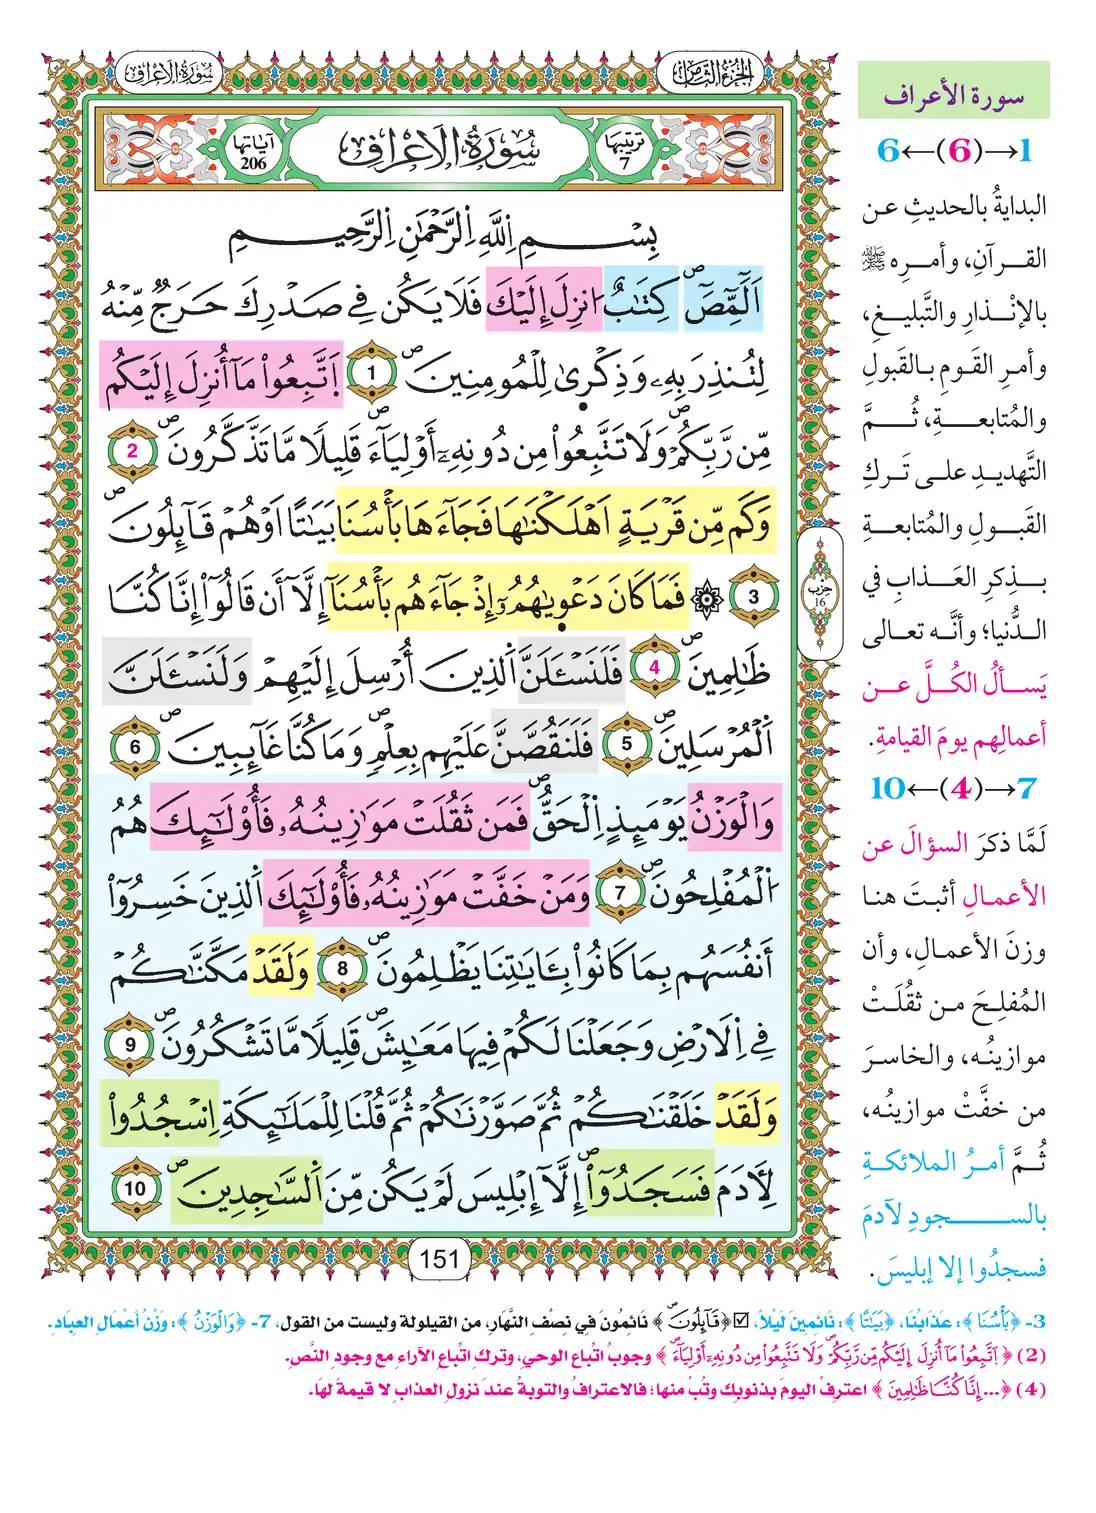 الجزء الثامن
سورة الأعراف
ترتيبها 7
سُورَةُ الَاعْرَافِ
آياتها 206
بِسْمِ اِللَّهِ اِلرَّحْمَٰنِ اِلرَّحِيمِ
أَلَٓمِّٓصَٓۖ كِتَٰبٌ ا۟نزِلَ إِلَيْكَ فَلَا يَكُن فِي صَدْرِكَ حَرَجٌ مِّنْهُ
لِتُنذِرَ بِهِۦ وَذِكْر۪ىٰ لِلْمُومِنِينَۖ 1 اَ۪تَّبِعُواْ مَآ أُنزِلَ إِلَيْكُم
مِّن رَّبِّكُمْۖ وَلَا تَتَّبِعُواْ مِن دُونِهِۦٓ أَوْلِيَآءَۖ قَلِيلًا مَّا تَذَّكَّرُونَۖ 2
وَكَم مِّن قَرْيَةٍ اَهْلَكْنَٰهَا فَجَآءَهَا بَأْسُنَا بَيَٰتًا اَوْ هُمْ قَآئِلُونَۖ
3 ۞ فَمَا كَانَ دَعْو۪يٰهُمُۥٓ إِذْ جَآءَهُم بَأْسُنَآ إِلَّآ أَن قَالُوٓاْ إِنَّا كُنَّا
ظَٰلِمِينَۖ 4 فَلَنَسْـَٔلَنَّ اَ۬لذِينَ أُرْسِلَ إِلَيْهِمْ وَلَنَسْـَٔلَنَّ
اَ۬لْمُرْسَلِينَۖ 5 فَلَنَقُصَّنَّ عَلَيْهِم بِعِلْمٍۖ وَمَا كُنَّا غَآئِبِينَۖ 6
وَالْوَزْنُ يَوْمَئِذٍ اِ۬لْحَقُّۖ فَمَن ثَقُلَتْ مَوَٰزِينُهُۥ فَأُوْلَٰٓئِكَ هُمُ
اُ۬لْمُفْلِحُونَۖ 7 وَمَنْ خَفَّتْ مَوَٰزِينُهُۥ فَأُوْلَٰٓئِكَ اَ۬لذِينَ خَسِرُوٓاْ
أَنفُسَهُم بِمَا كَانُواْ بِـَٔايَٰتِنَا يَظْلِمُونَۖ 8 وَلَقَدْ مَكَّنَّٰكُمْ
فِي اِ۬لَارْضِ وَجَعَلْنَا لَكُمْ فِيهَا مَعَٰيِشَۖ قَلِيلًا مَّا تَشْكُرُونَۖ 9
وَلَقَدْ خَلَقْنَٰكُمْ ثُمَّ صَوَّرْنَٰكُمْ ثُمَّ قُلْنَا لِلْمَلَٰٓئِكَةِ اِ۟سْجُدُواْ
لِأٓدَمَ فَسَجَدُوٓاْ إِلَّآ إِبْلِيسَ لَمْ يَكُن مِّنَ اَ۬لسَّٰجِدِينَۖ 10
حزب 16
151
سورة الأعراف
6←(6)→1
البدايةُ بالحديثِ عن
القرآنِ، وأمرِه ﷺ
بالإنْذارِ والتَّبليغِ،
وأمرِ القَومِ بالقَبولِ
والمُتابعةِ، ثُمَّ
التَّهديدِ على تَركِ
القَبولِ والمُتابعةِ
بذِكرِ العَذابِ في
الدُّنيا؛ وأنَّه تعالى
يَسألُ الكُلَّ عن
أعمالِهم يومَ القيامةِ.
10←(4)→7
لَمَّا ذكرَ السؤالَ عن
الأعمالِ أثبتَ هنا
وزنَ الأعمالِ، وأن
المُفلِحَ من ثقُلَتْ
موازينُه، والخاسرَ
من خفَّتْ موازينُه،
ثُمَّ أمرُ الملائكةِ
بالسجودِ لآدمَ
فسجدُوا إلا إبليسَ.
3- ﴿بَأْسُنَا﴾: عذابُنَا، ﴿بَيَٰتًا﴾: نائمِينَ لَيْلًا، ☑ ﴿قَآئِلُونَۖ﴾ نائمُونَ في نصْفِ النَّهَارِ، من القيلولة وليست من القول، 7- ﴿وَالْوَزْنُ﴾: وزْنُ أعْمَالِ العِبَادِ.
(2) ﴿اَ۪تَّبِعُواْ مَآ أُنزِلَ إِلَيْكُم مِّن رَّبِّكُمْۖ وَلَا تَتَّبِعُواْ مِن دُونِهِۦٓ أَوْلِيَآءَۖ﴾ وجوبُ اتِّباع الوحي، وتركِ اتِّباعِ الآراءِ مع وجودِ النَّصِ.
(4) ﴿... إِنَّا كُنَّا ظَٰلِمِينَ﴾ اعترِفْ اليومَ بذنوبِك وتُبْ منها؛ فالاعترافُ والتوبةُ عندَ نزولِ العذابِ لا قيمةَ لهَا.